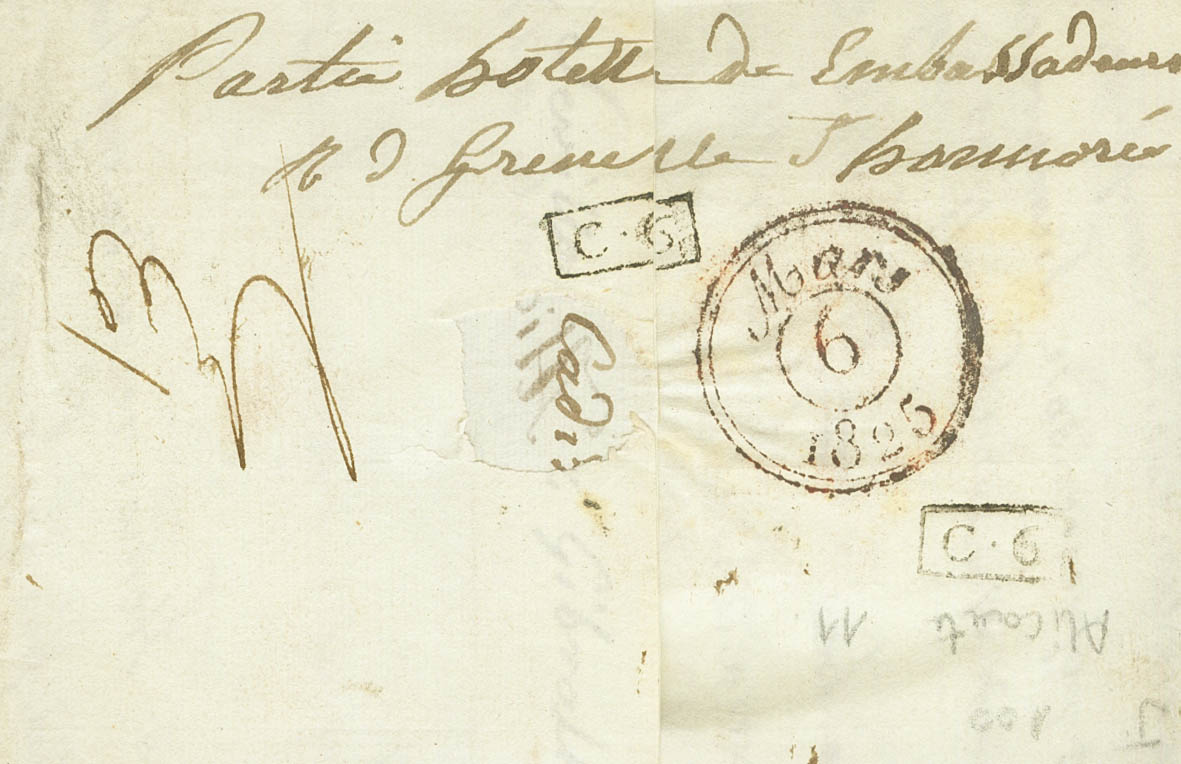 Partie hotelle de Embassadeurs
R d. Grenelle S honnorée
C. G
Mars
6
1825
Cadi
C. G
Alicante 11
100